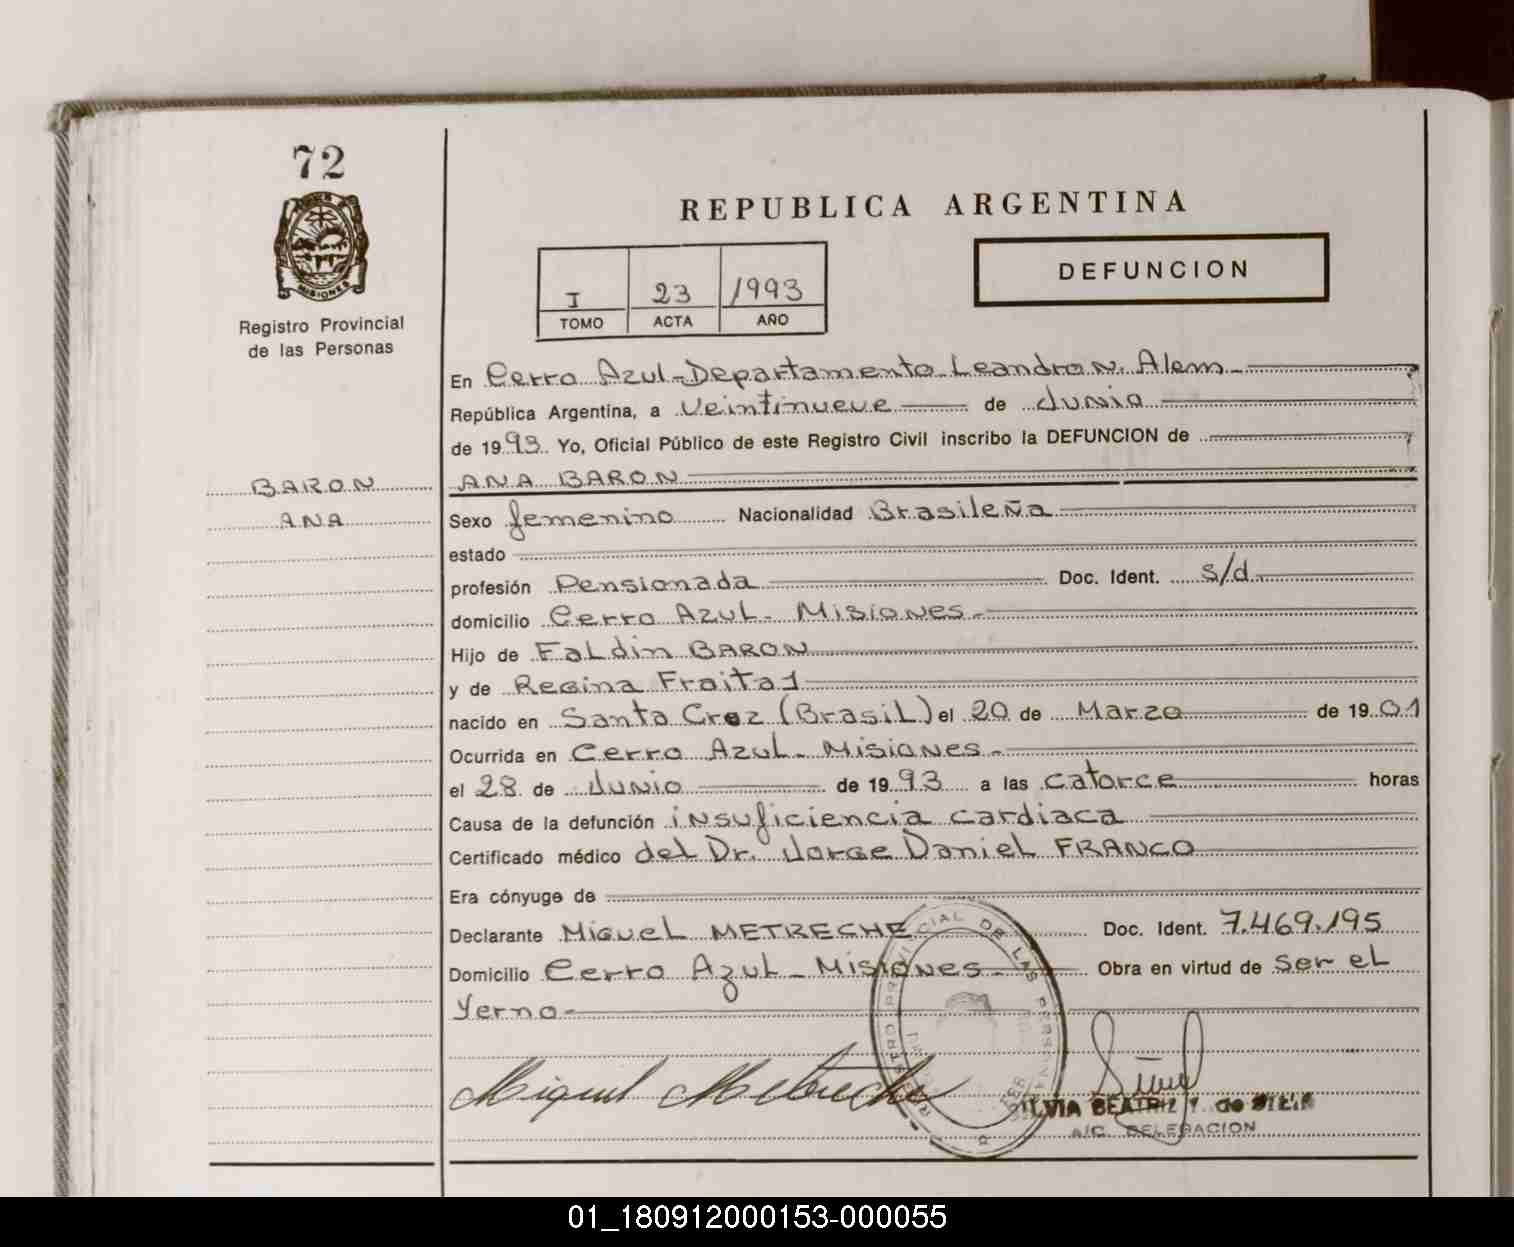 72
MISIONES
Registro Provincial
de las Personas
REPUBLICA ARGENTINA
I 23 1993
TOMO ACTA AÑO
DEFUNCION
En Cerro Azul-Departamento Leandro N. Alem
República Argentina, a Veintinueve de Junio
de 1993 Yo, Oficial Público de este Registro Civil inscribo la DEFUNCION de
BARON
ANA
ANA BARON
Sexo femenino Nacionalidad Brasileña
estado
profesión Pensionada Doc. Ident. s/d
domicilio Cerro Azul - Misiones
Hijo de Faldin BARON
y de Regina Fraita
nacido en Santa Cruz (Brasil) el 20 de Marzo de 1901
Ocurrida en Cerro Azul - Misiones
el 28 de Junio de 1993 a las catorce horas
Causa de la defunción insuficiencia cardiaca
Certificado médico del Dr. Jorge Daniel FRANCO
Era cónyuge de
Declarante Miguel METRECHE Doc. Ident. 7.469.195
Domicilio Cerro Azul - Misiones Obra en virtud de ser el
Yerno
REGISTRO PROVINCIAL DE LAS PERSONAS
Miguel Metreche
SILVIA BEATRIZ Y. de
A/C. DELEGACION
01_180912000153-000055